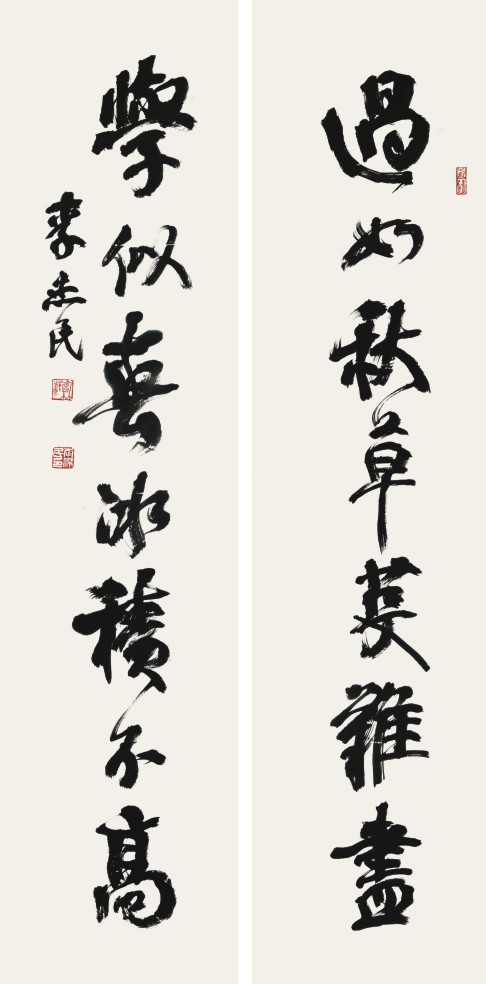 過如秋草芟難盡
學似春冰積不高
李民